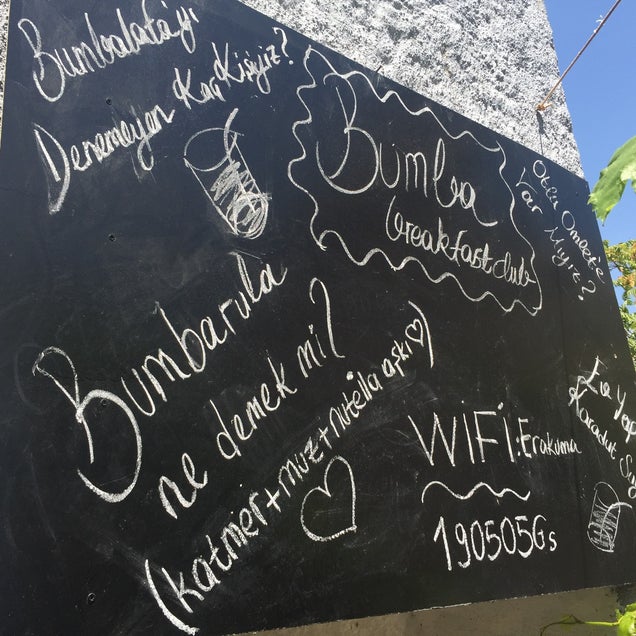 Bumbalatayı
Denemeyen Kaç Kişiyiz?
Bumba
breakfast club
Otlu Omlete
Var Mıyız?
Bumbarula
ne demek mi?
(katmer+muz+nutella aşkı♡)
WiFi: Erakuma
190505Gs
Ev Yap
Karadut Su